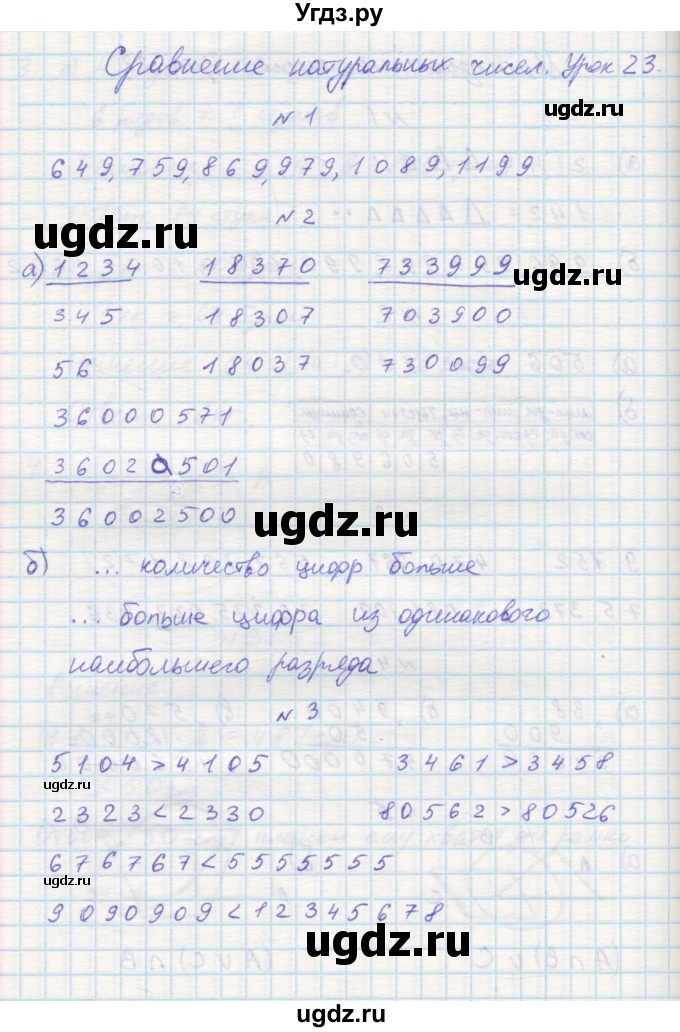 Угдз.ру
Сравнение натуральных чисел. Урок 23.
ugdz.ru
№1
649, 759, 869, 979, 1089, 1199
№2
ugdz.ru
а) 1234 18370 733999
345 18307 703900
56 18037 730099
36000571
ugdz.ru
36020501
36002500
ugdz.ru
б) ... количество цифр больше
... больше цифра из одинакового
наибольшего разряда
№3
5104 > 4105 3461 > 3458
ugdz.ru
2323 < 2330 80562 > 80526
676767 < 5555555
ugdz.ru
9090909 < 12345678
ugdz.ru
ugdz.ru